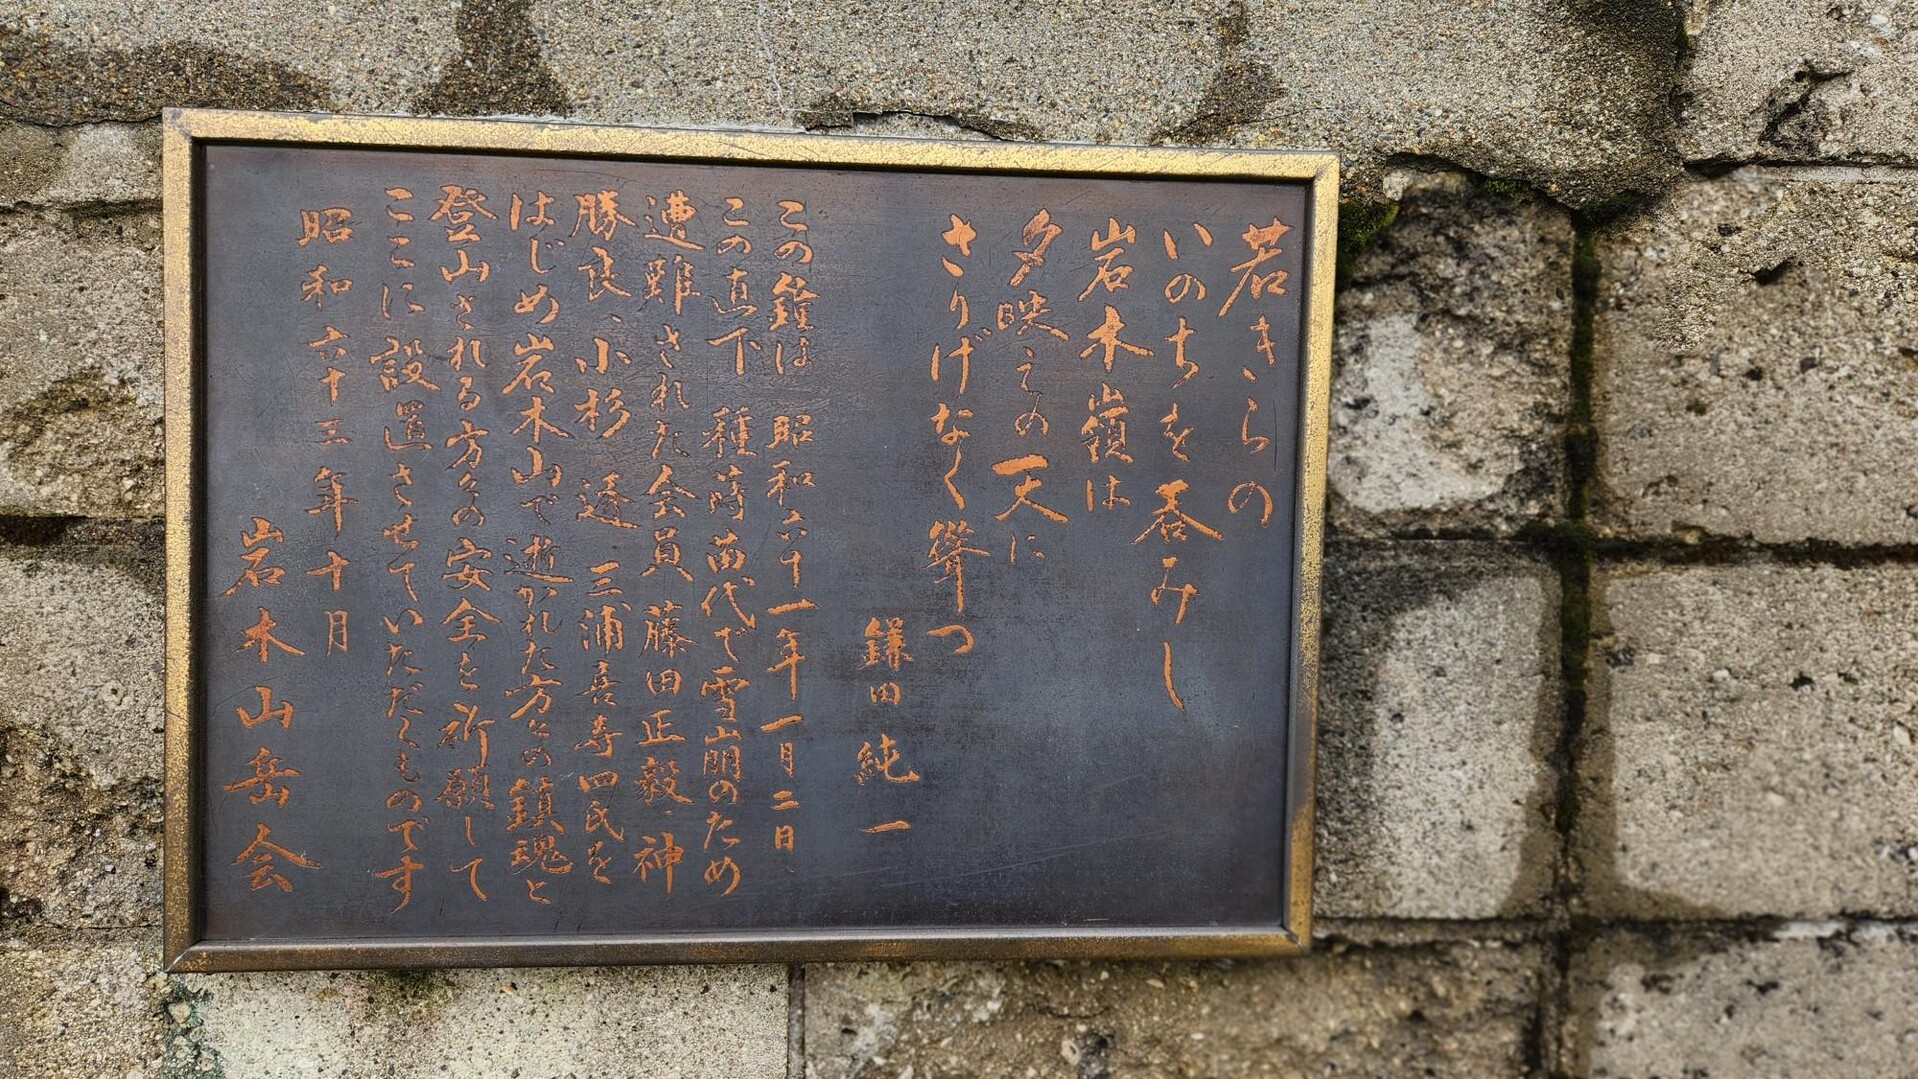 若きらの
いのちを呑みし
岩木嶺は
夕映えの天に
さりげなく聳つ
鎌田純一
この鐘は 昭和六十一年一月二日
この直下 種蒔苗代で雪山開のため
遭難された会員 藤田正毅、神
勝良、小杉 透 三浦喜寿四氏を
はじめ岩木山で逝かれた方々の鎮魂と
登山される方々の安全を祈願して
ここに設置させていただくものです
昭和六十三年十月
岩木山岳会